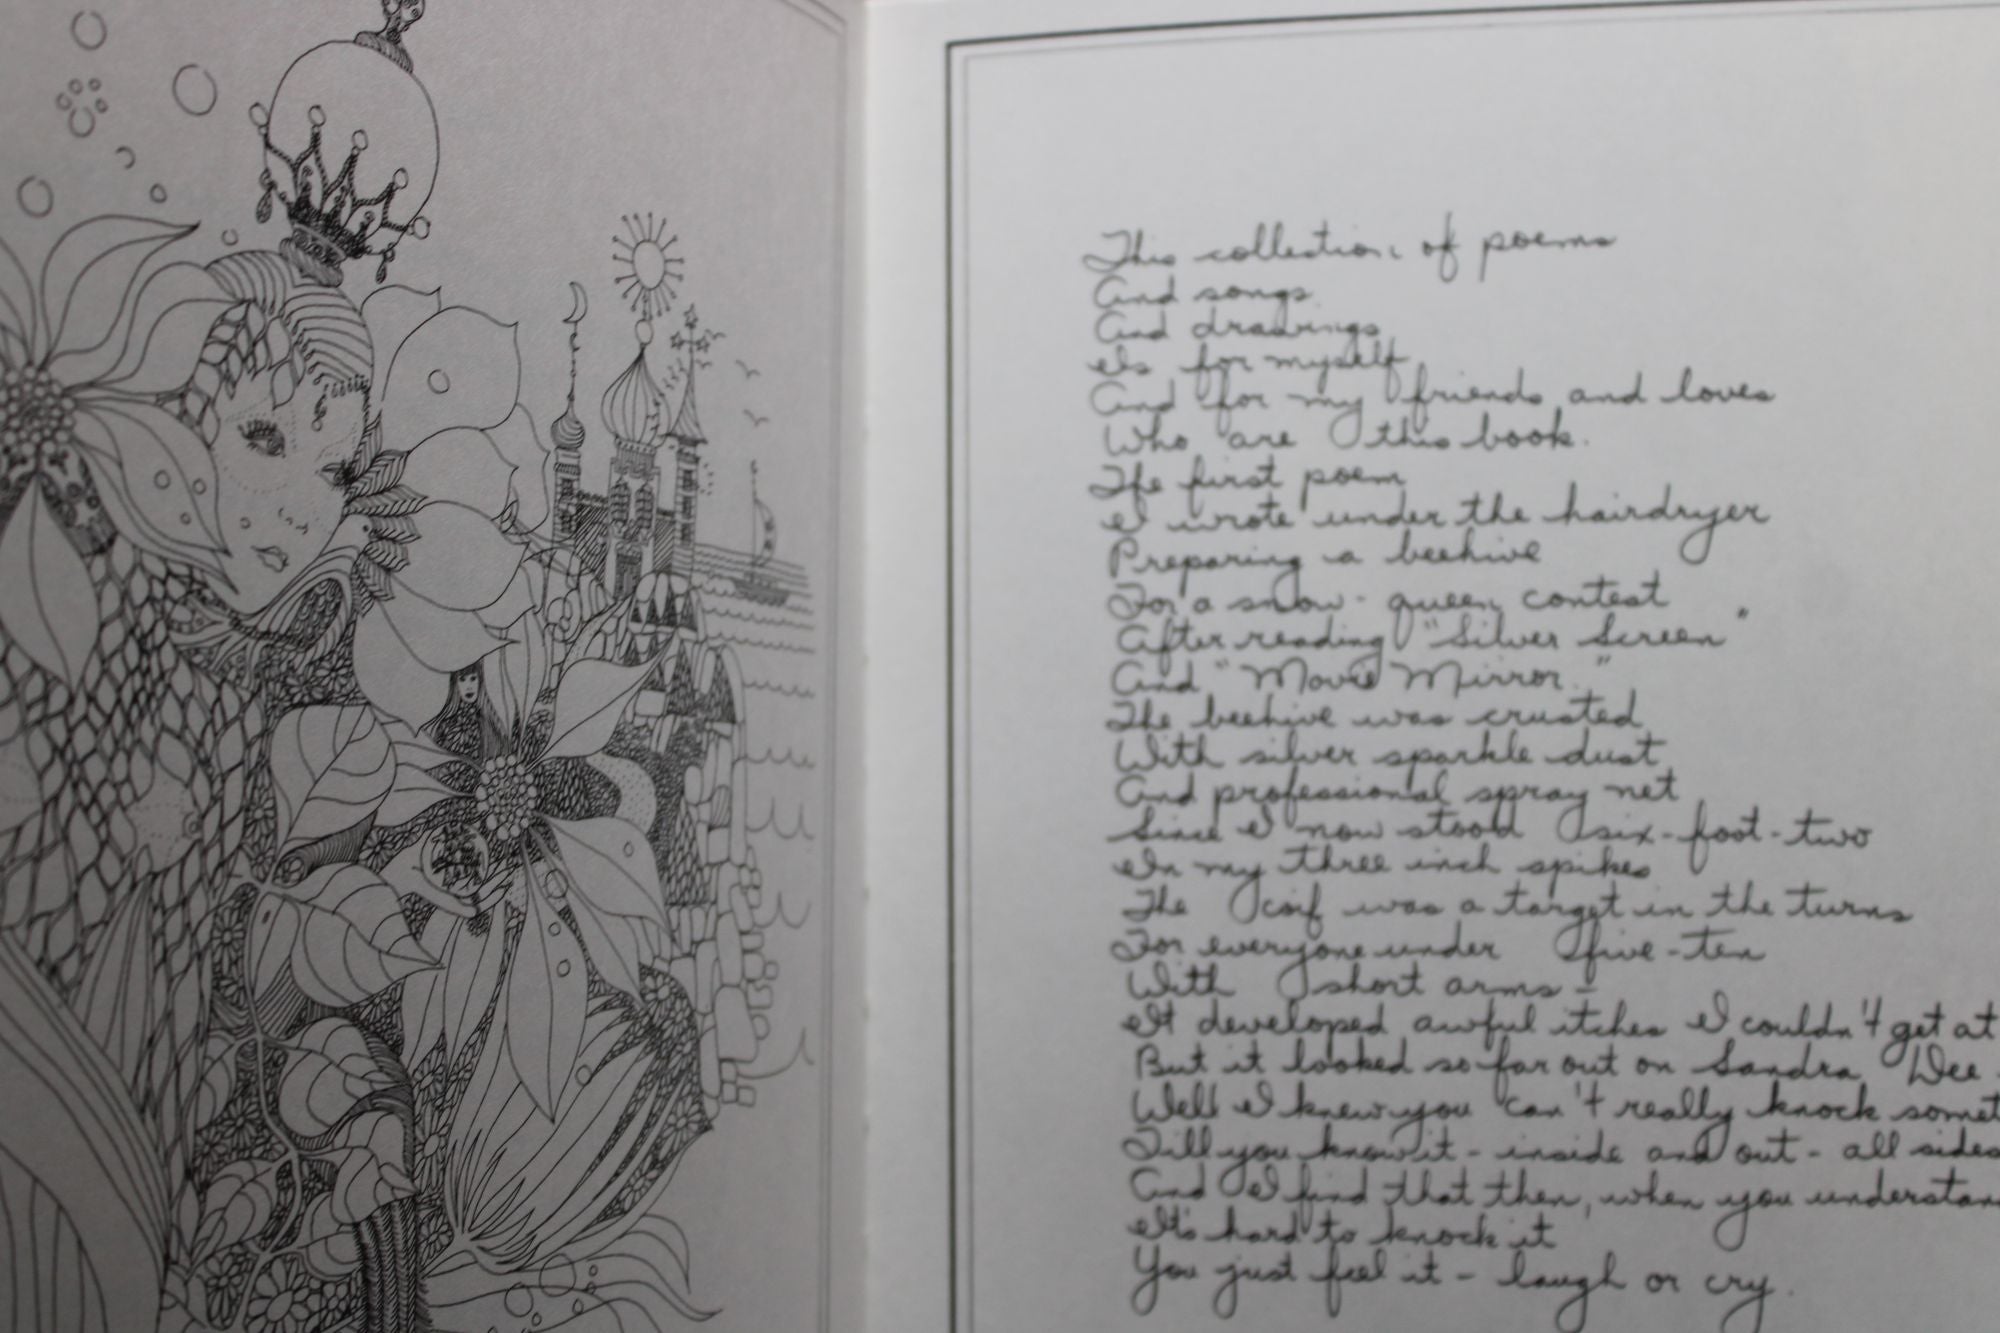 This collection of poems
And songs
And drawings
Is for myself
And for my friends and loves
Who are this book.
The first poem
I wrote under the hairdryer
Preparing a beehive
For a snow-queen contest
After reading "Silver Screen"
And "Movie Mirror."
The beehive was crusted
With silver sparkle dust
And professional spray net
Since I now stood six-foot-two
In my three inch spikes
The coif was a target in the turns
For everyone under five-ten
With short arms -
It developed awful itches I couldn't get at
But it looked so far out on Sandra Dee
Well I knew you can't really knock somet
Till you know it - inside and out - all sides
And I find that then, when you understan
It's hard to knock it
You just feel it - laugh or cry.